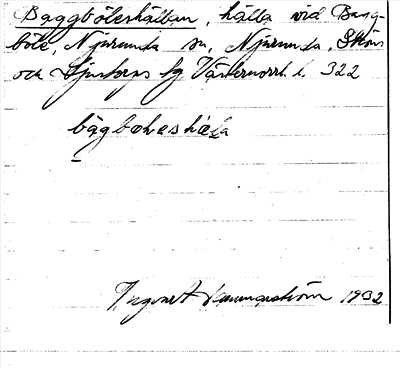 Baggböleshällan, hälla vid Bagg-
böle, Njurunda sn, Njurunda, Sköns
och Ljustorps tg Västernorrl. l. 322
bägbøleshæla
Ingvar Hammarström 1932